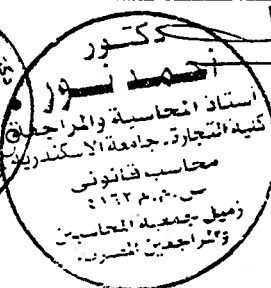 دكتور
أحمد نور
أستاذ المحاسبة والمراجعة
كلية التجارة - جامعة الاسكندرية
محاسب قانونى
زميل جمعية المحاسبين
والمراجعين المصرية